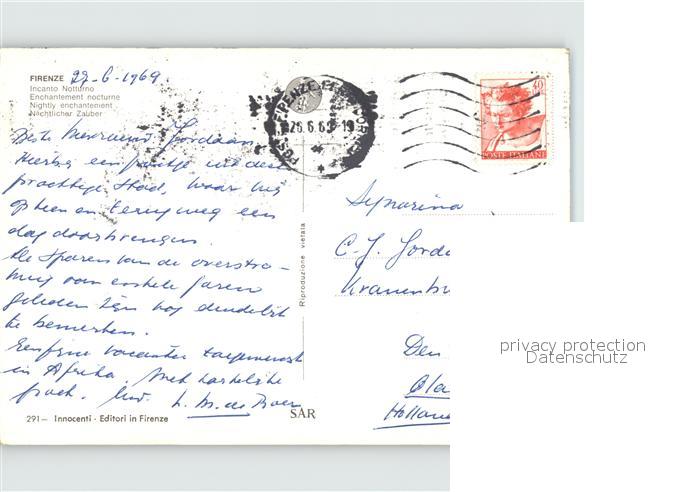 FIRENZE 22-6-1969.
Incanto Notturno
Enchantement nocturne
Nightly enchantement
Nächtlicher Zauber
Beste Mevrouw Jordaan
Hierbij een uit deze
prachtige stad, waar wij
op heen en terug weg een
dag doorbrengen.
De sporen van de overstro-
ming van enkele jaren
geleden zijn nog duidelijk
te bemerken.
vacantie toegewenst
in Afrika. Met hartelijke
groet. L. M. de Boer
291 — Innocenti - Editori in Firenze
SAR
Riproduzione vietata
FIRENZE
25.6.69-19
POSTE ITALIANE
40
Signorina
C. J. Jorda
Kranenbu
Den
Holland
privacy protection
Datenschutz